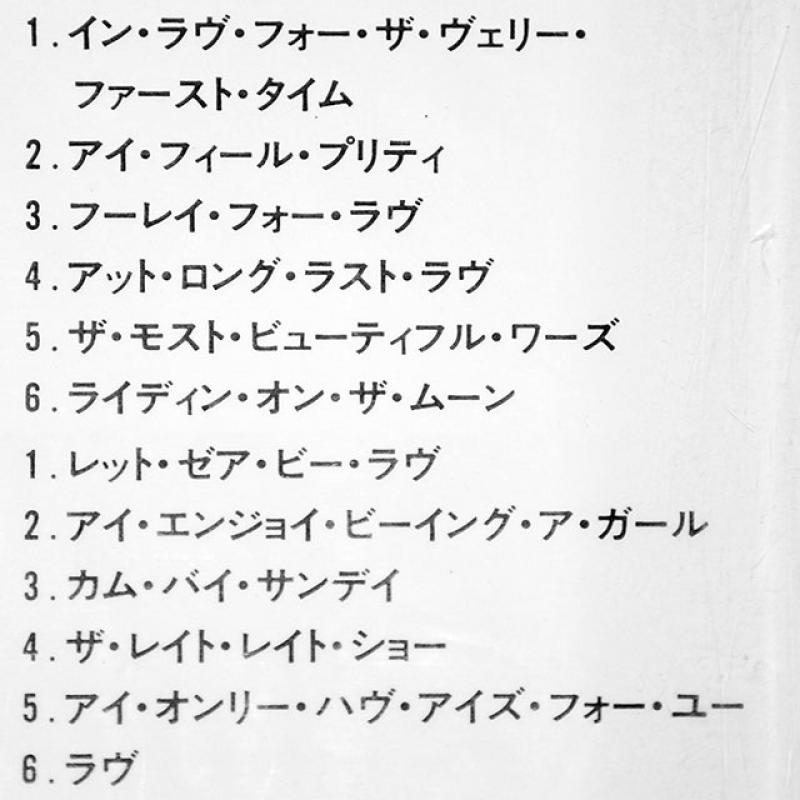 1.イン・ラヴ・フォー・ザ・ヴェリー・
ファースト・タイム
2.アイ・フィール・プリティ
3.フーレイ・フォー・ラヴ
4.アット・ロング・ラスト・ラヴ
5.ザ・モスト・ビューティフル・ワーズ
6.ライディン・オン・ザ・ムーン
1.レット・ゼア・ビー・ラヴ
2.アイ・エンジョイ・ビーイング・ア・ガール
3.カム・バイ・サンデイ
4.ザ・レイト・レイト・ショー
5.アイ・オンリー・ハヴ・アイズ・フォー・ユー
6.ラヴ